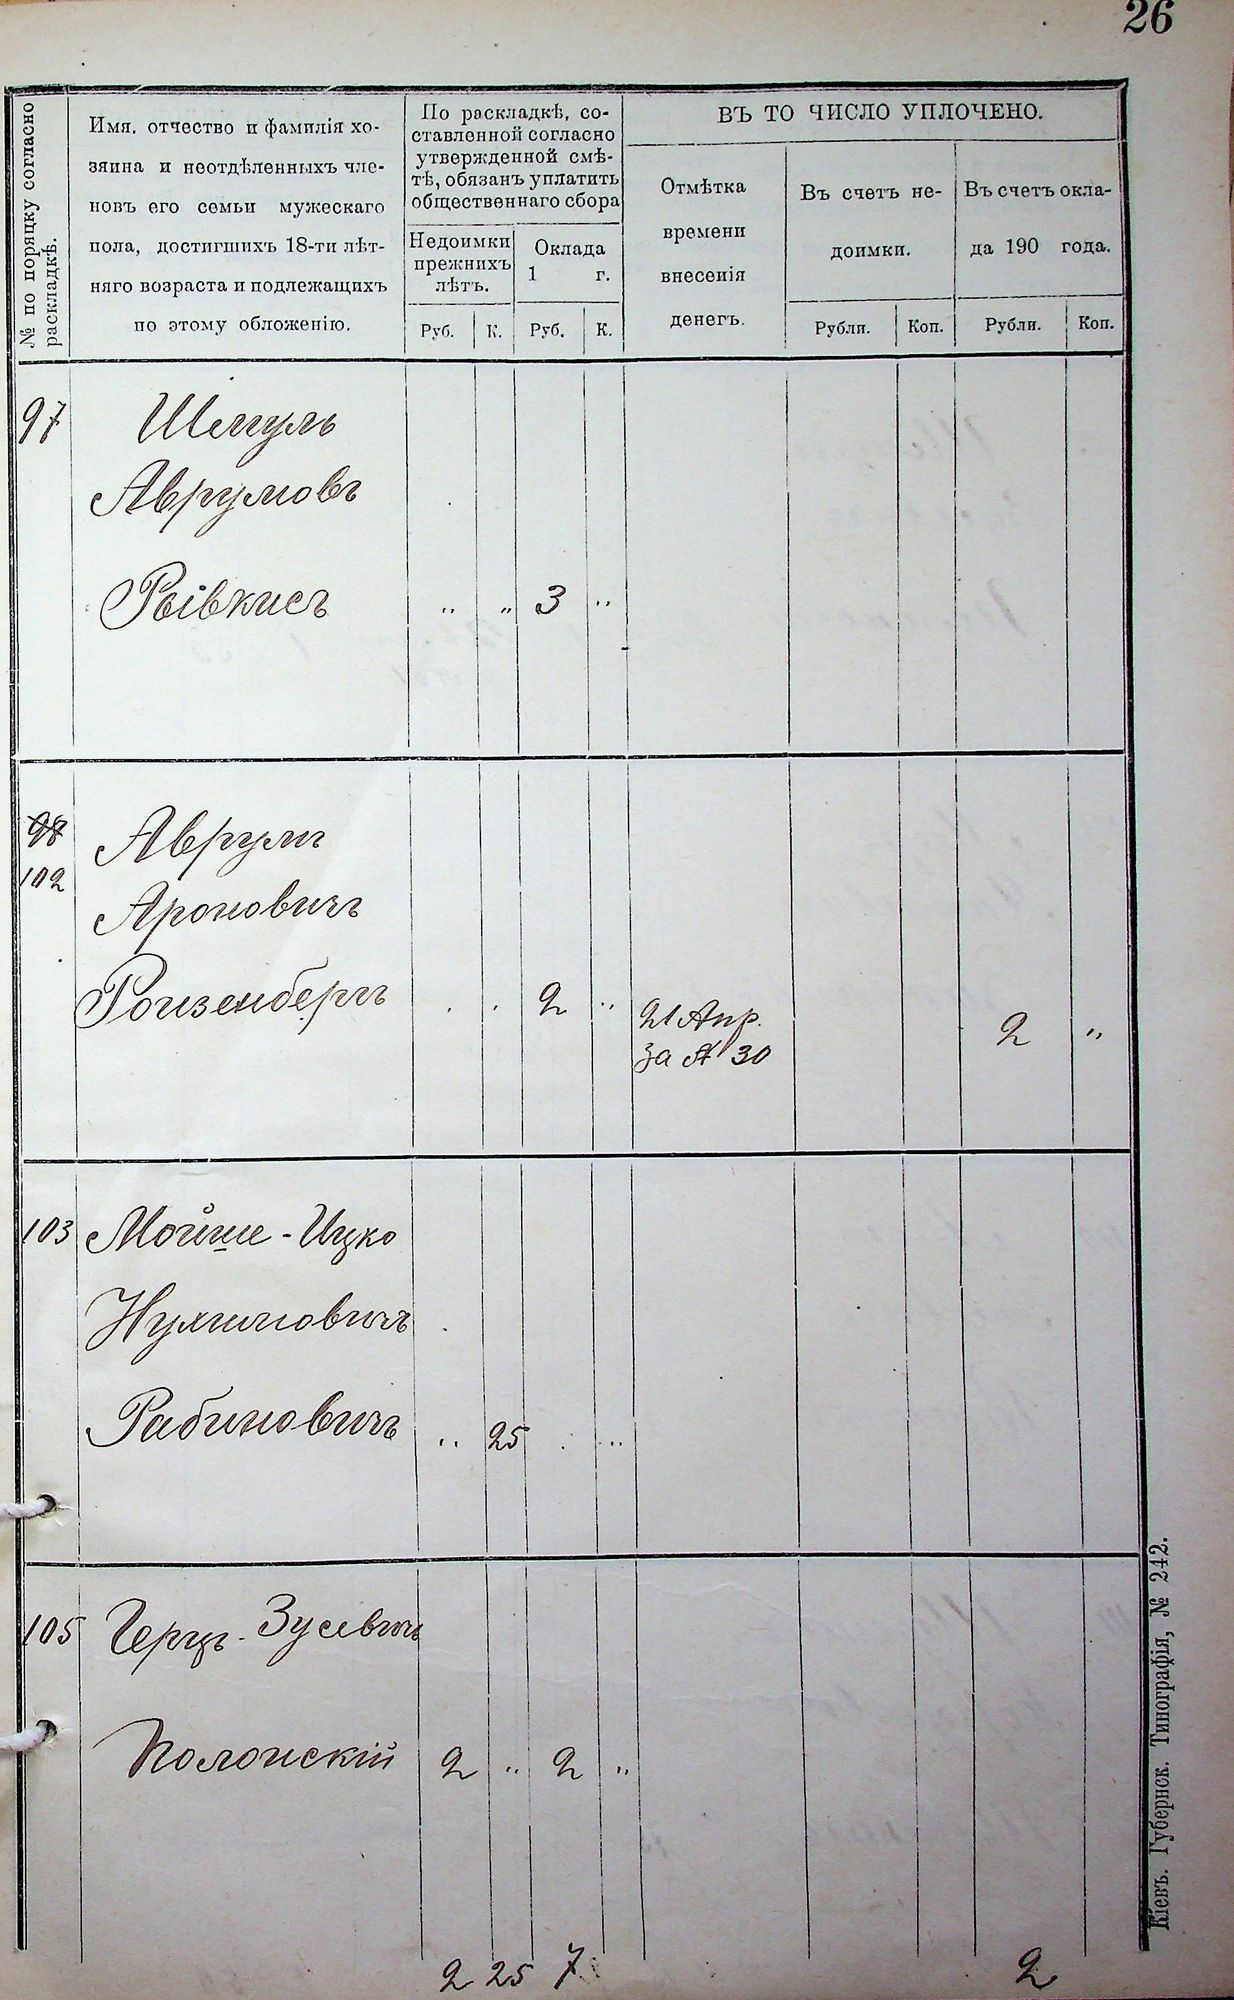 26
№ по порядку согласно
раскладкѣ.
Имя, отчество и фамилія хо-
зяина и неотдѣленныхъ чле-
новъ его семьи мужескаго
пола, достигшихъ 18-ти лѣт-
няго возраста и подлежащихъ
по этому обложенію.
По раскладкѣ, со-
ставленной согласно
утвержденной смѣ-
тѣ, обязанъ уплатить
общественнаго сбора
Недоимки
прежнихъ
лѣтъ.
Оклада
1 г.
Руб. К. Руб. К.
ВЪ ТО ЧИСЛО УПЛОЧЕНО.
Отмѣтка
времени
внесенія
денегъ.
Въ счетъ не-
доимки.
Въ счетъ окла-
да 190 года.
Рубли. Коп. Рубли. Коп.
97 Шмуль
Аврумовъ
Рывкисъ " " 3 "
98 Аврумъ
102
Ароновичъ
Ройзенбергъ . . 2 " 21 Апр. 2 "
за № 30
103 Мойше-Ицко
Нухимовичъ
Рабиновичъ " 25 . "
105 Герцъ-Зусевичъ
Полонскій 2 " 2 "
2 25 7 2
Кіевъ. Губернск. Типографія, № 242.